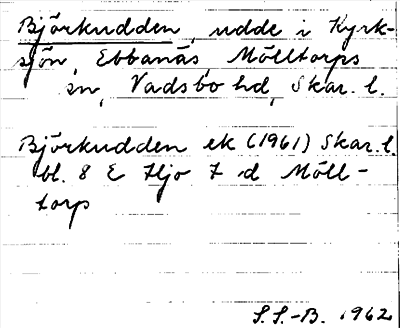 Björkudden, udde i Kyrk-
sjön, Ebbanäs Mölltorps
sn, Vadsbo hd, Skar. l.
Björkudden ek (1961) Skar. l.
bl. 8 E Hjo 7 d Möll-
torp
S.S.-B. 1962